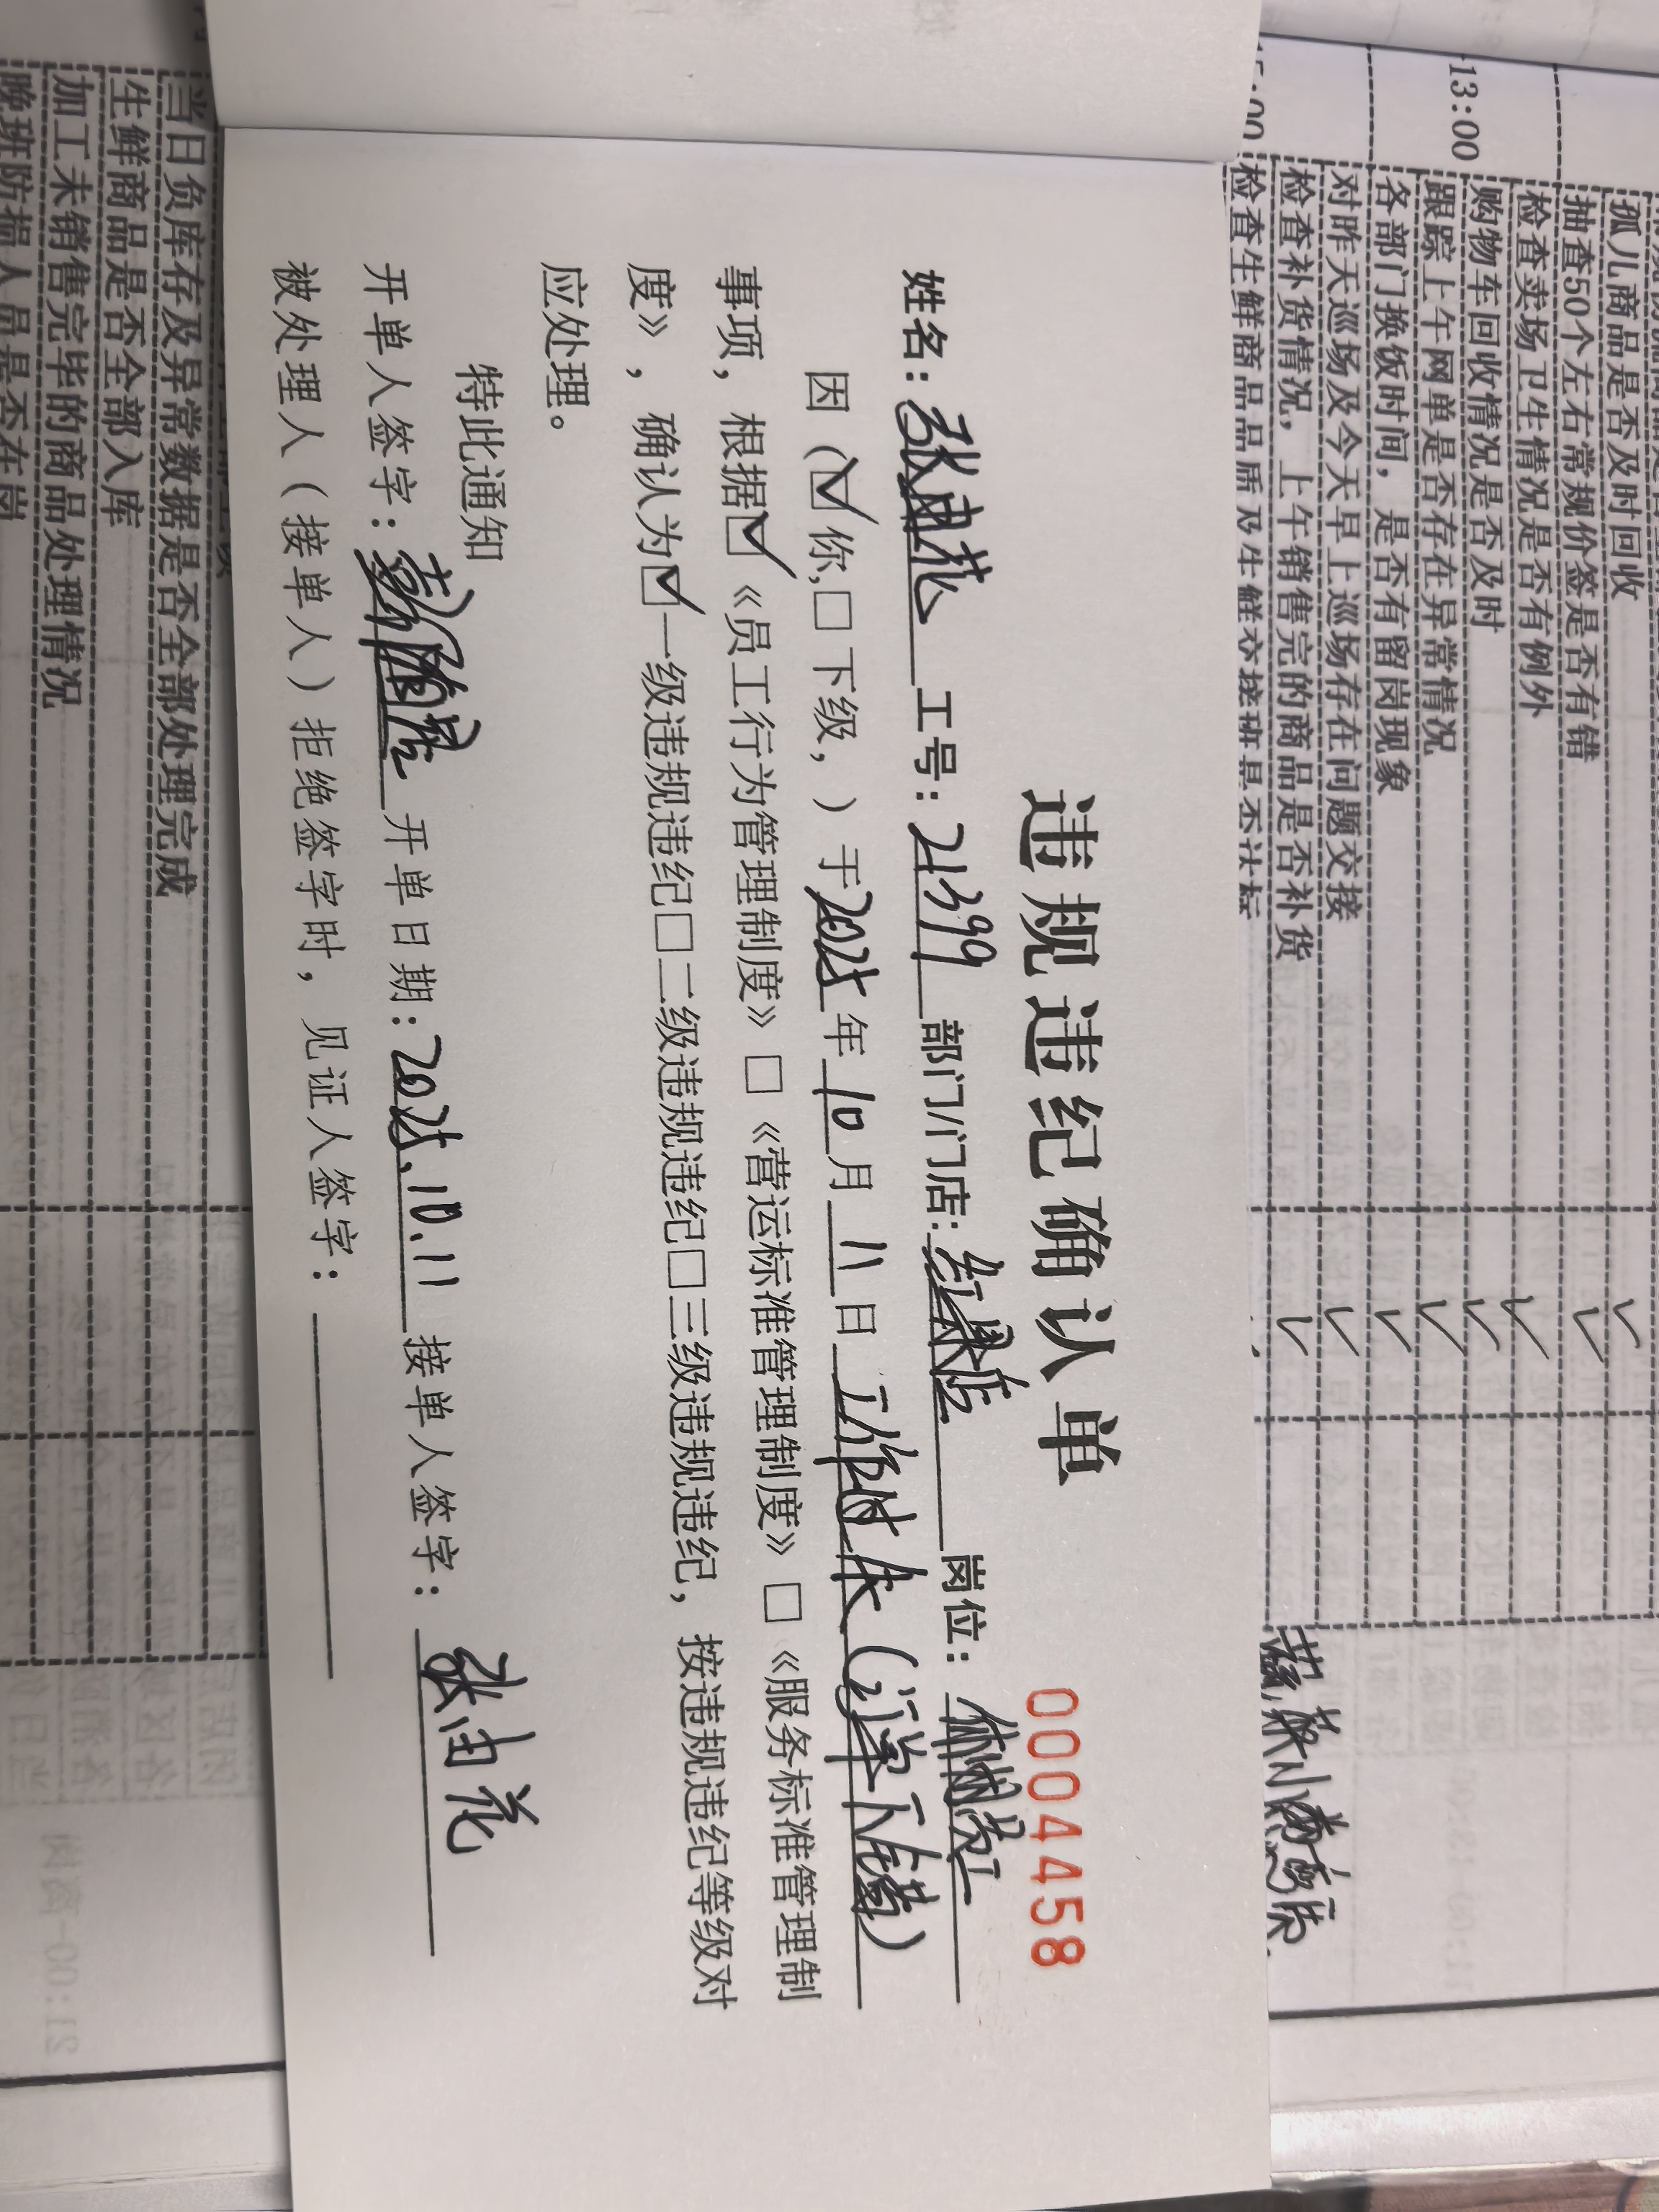 违规违纪确认单
0004458
姓名：张由花 工号：21399 部门/门店：红 店 岗位：
因（☑你，□下级，）于2025年10月11日工作时失（ ）
事项，根据☑《员工行为管理制度》□《营运标准管理制度》□《服务标准管理制
度》，确认为☑一级违规违纪□二级违规违纪□三级违规违纪，按违规违纪等级对
应处理。
特此通知
开单人签字： 开单日期：2025.10.11 接单人签字：张由花
被处理人（接单人）拒绝签字时，见证人签字：
孤儿商品是否及时回收
抽查50个左右常规价签是否有错
检查卖场卫生情况是否有例外
13:00
购物车回收情况是否及时
跟踪上午网单是否存在异常情况
各部门换饭时间，是否有留岗现象
对昨天巡场及今天早上巡场存在问题交接
检查补货情况，上午销售完的商品是否补货
检查生鲜商品品质及生鲜交接班是否达标
当日负库存及异常数据是否全部处理完成
生鲜商品是否全部入库
加工未销售完毕的商品处理情况
晚班防损人员是否在岗